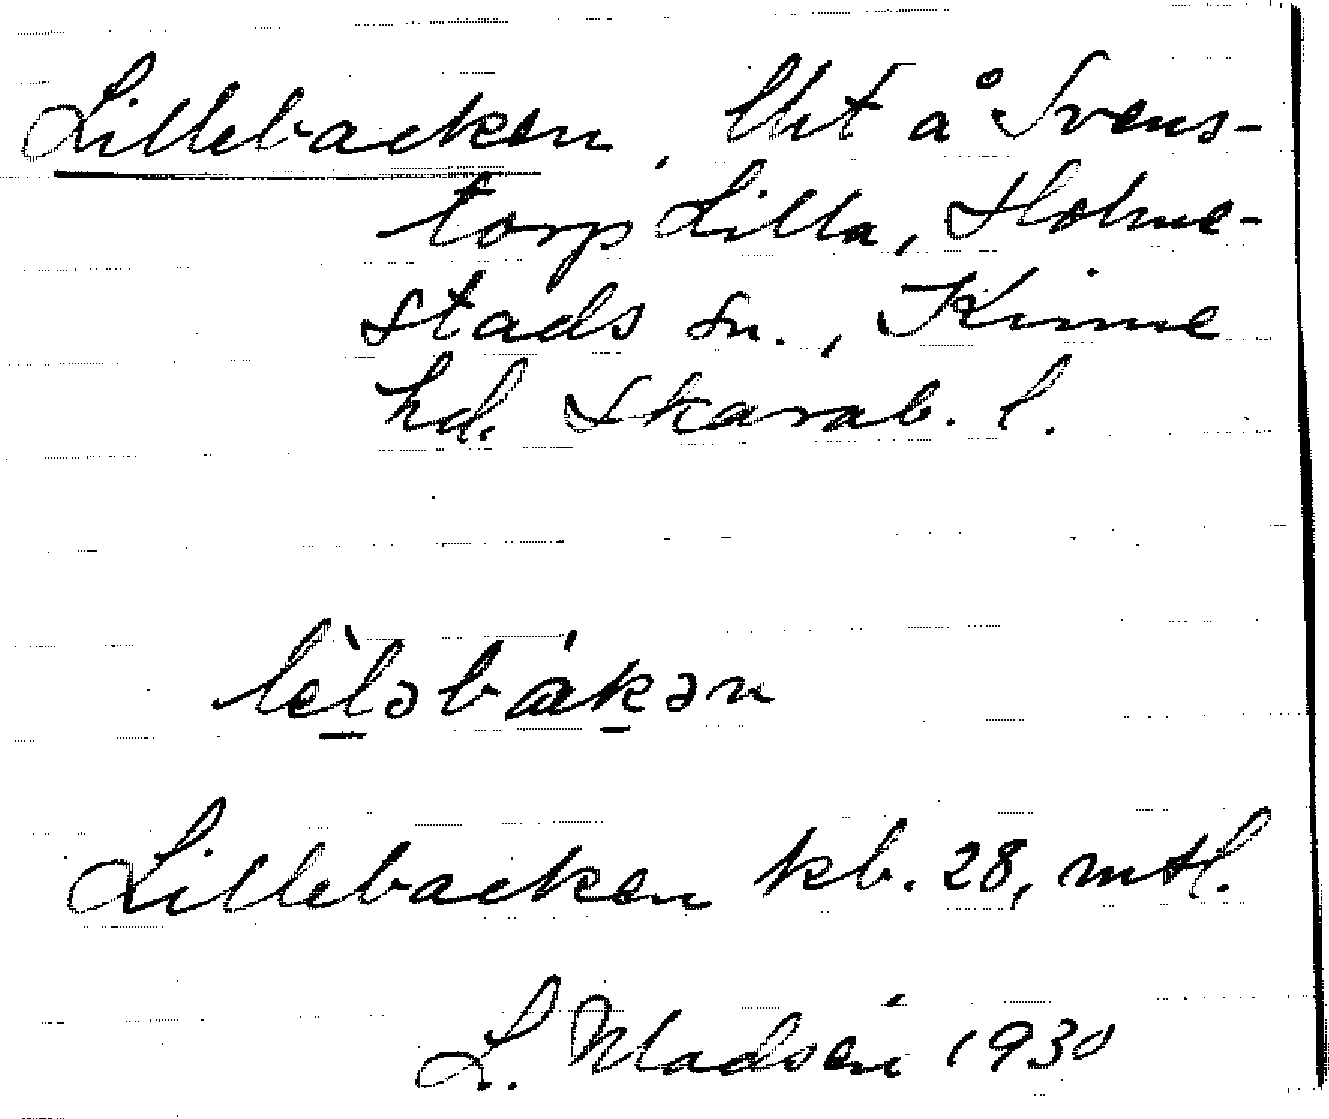 Lillebacken, lht å Svens-
torp Lilla, Holme-
stads sn., Kinne
hd. Skarab. l.
lèləbákən
Lillebacken kb. 28, mtl.
L. Madsén 1930